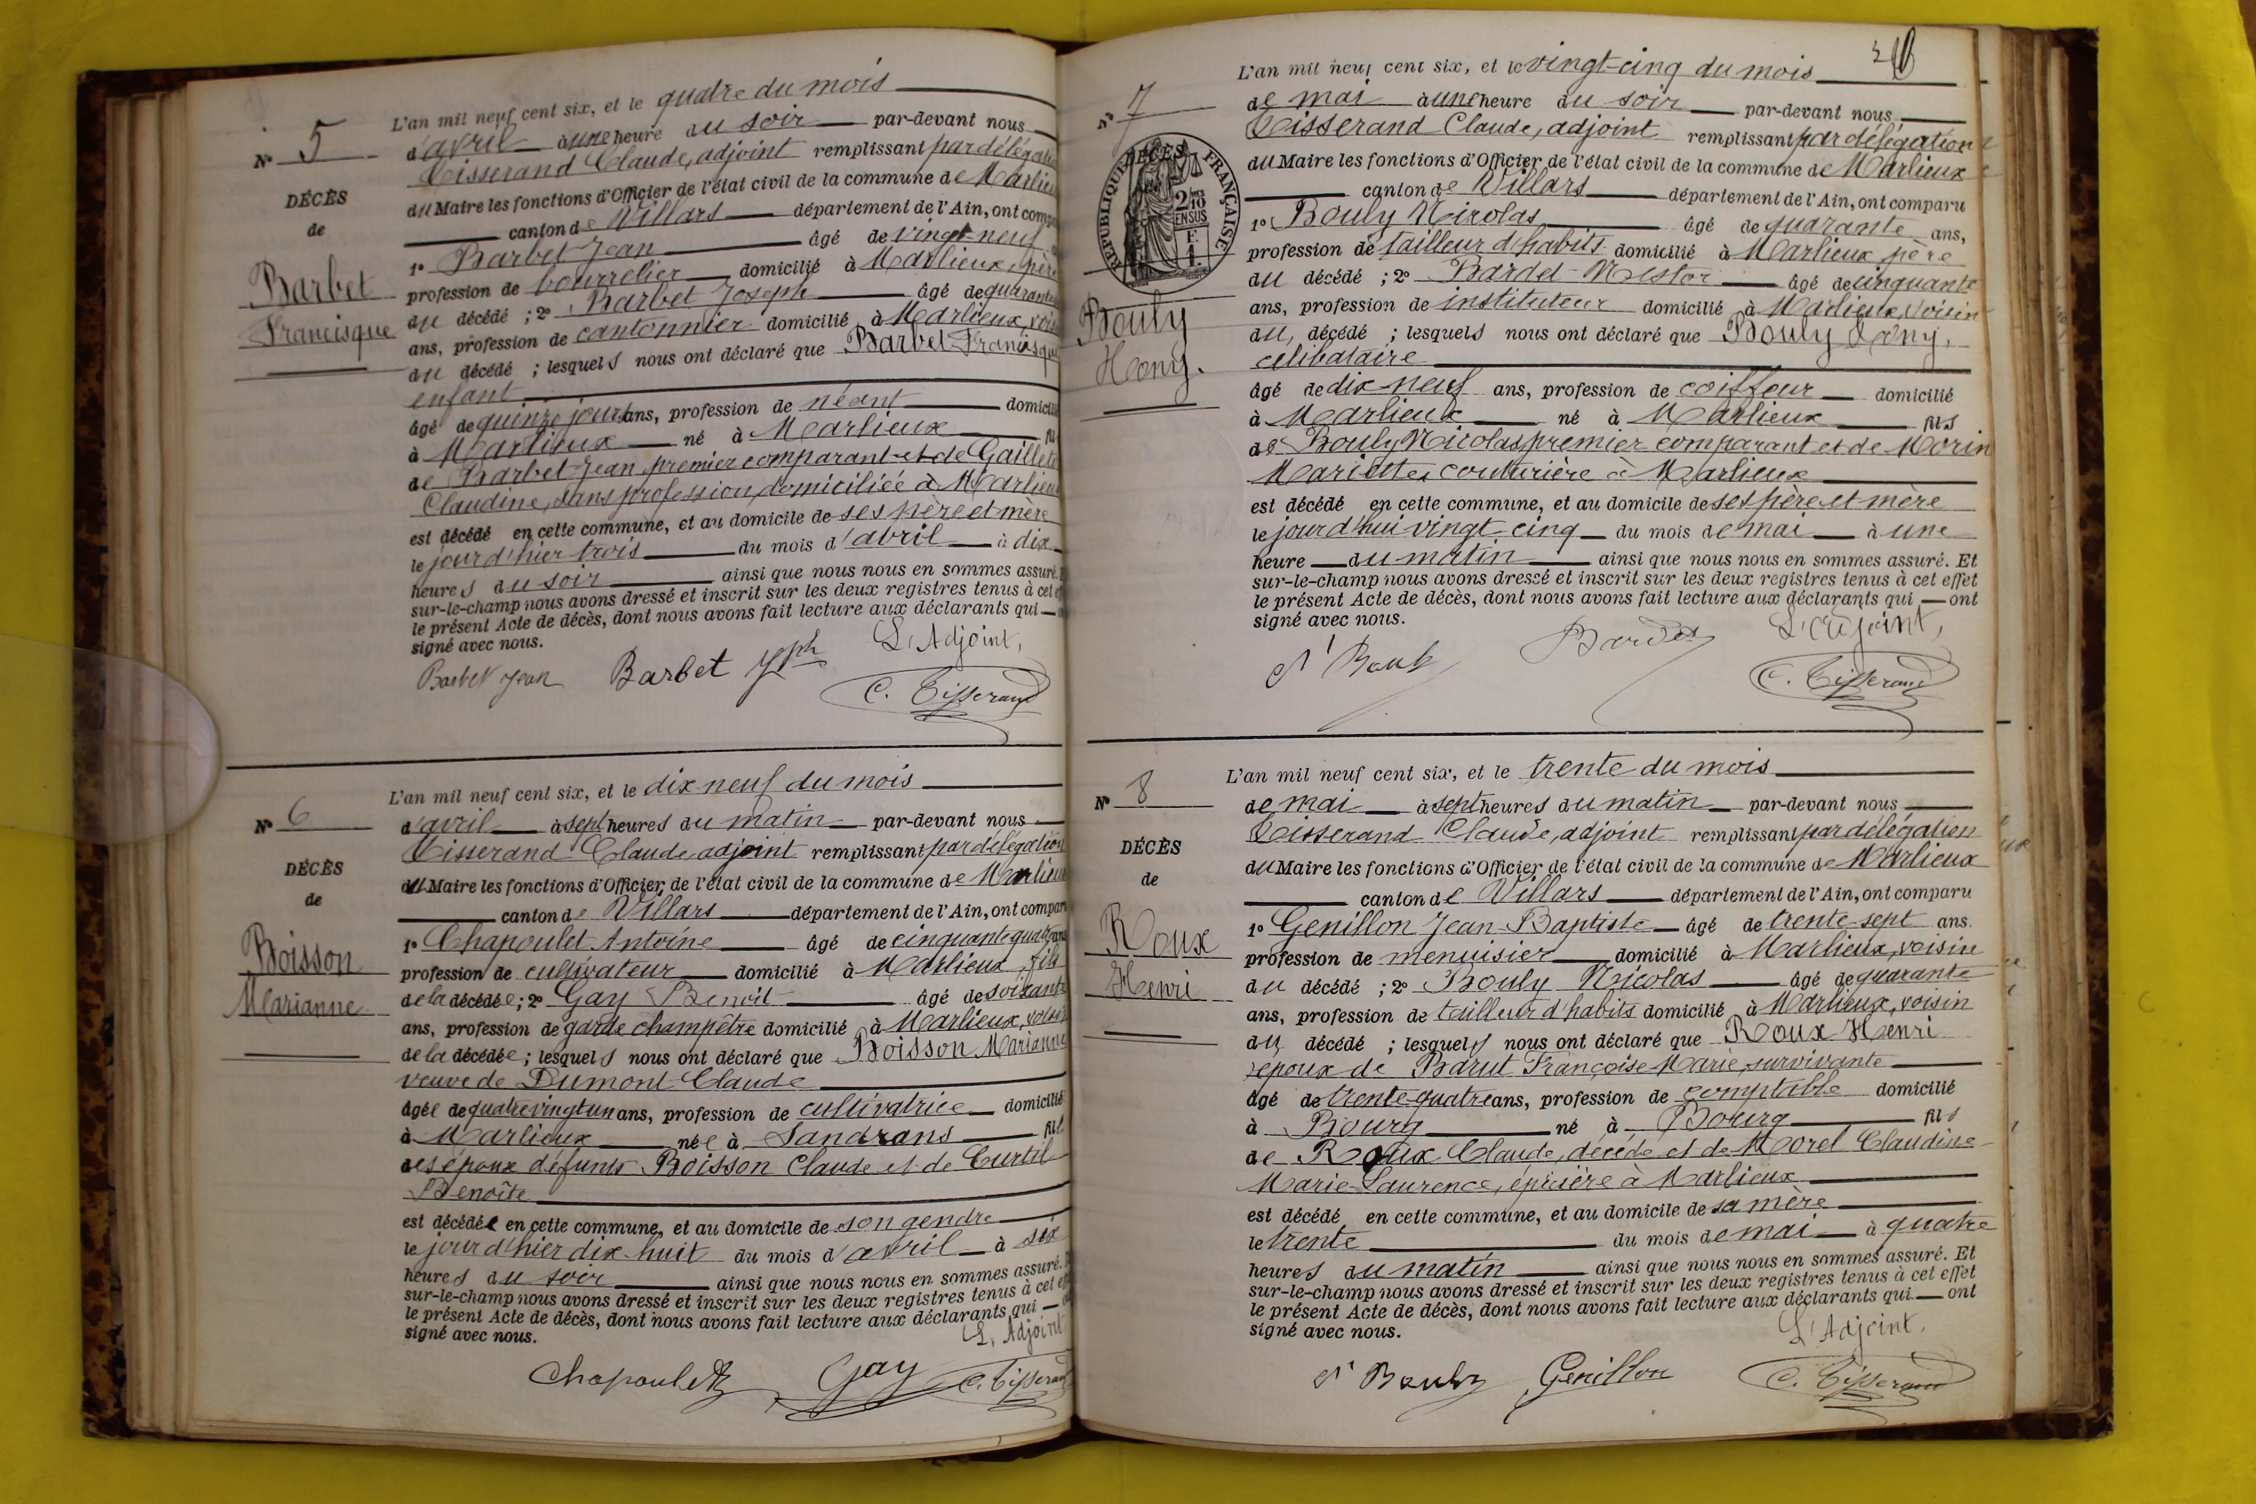 L'an mil neuf cent six, et le quatre du mois
d'avril à une heure du soir par-devant nous
Nº 5
Tisserand Claude, adjoint remplissant par délégation
du Maire les fonctions d'Officier de l'état civil de la commune de Marlieux
DÉCÈS
de
canton de Villars département de l'Ain, ont comparu
1º Barbet Jean âgé de vingt-neuf
Barbet
Francisque
profession de bourrelier domicilié à Marlieux, père
du décédé ; 2º Barbet Joseph âgé de quarante
ans, profession de cantonnier domicilié à Marlieux, voisin
du décédé ; lesquels nous ont déclaré que Barbet Francisque
enfant
âgé de quinze jours ans, profession de néant domicilié
à Marlieux né à Marlieux fils
de Barbet Jean, premier comparant et de Gaillet
Claudine, sans profession, domiciliée à Marlieux
est décédé en cette commune, et au domicile de ses père et mère
le jour d'hier trois du mois d'avril à dix
heures du soir ainsi que nous nous en sommes assuré. Et
sur-le-champ nous avons dressé et inscrit sur les deux registres tenus à cet effet
le présent Acte de décès, dont nous avons fait lecture aux déclarants qui ont
signé avec nous.
L'Adjoint,
Barbet Jean Barbet Jph C. Tisserand
L'an mil neuf cent six, et le dix-neuf du mois
d'avril à sept heures du matin par-devant nous
Nº 6
Tisserand Claude, adjoint remplissant par délégation
du Maire les fonctions d'Officier de l'état civil de la commune de Marlieux
DÉCÈS
de
canton de Villars département de l'Ain, ont comparu
1º Chapoulet Antoine âgé de cinquante quatre ans
Boisson
Marianne
profession de cultivateur domicilié à Marlieux, fils
de la décédée ; 2º Gay Benoît âgé de soixante
ans, profession de garde champêtre domicilié à Marlieux, voisin
de la décédée ; lesquels nous ont déclaré que Boisson Marianne
veuve de Dumont Claude
âgée de quatre vingt un ans, profession de cultivatrice domicilié
à Marlieux née à Sandrans fille
des époux défunts Boisson Claude et de Curtil
Benoîte
est décédée en cette commune, et au domicile de son gendre
le jour d'hier dix-huit du mois d'avril à six
heures du soir ainsi que nous nous en sommes assuré. Et
sur-le-champ nous avons dressé et inscrit sur les deux registres tenus à cet effet
le présent Acte de décès, dont nous avons fait lecture aux déclarants qui ont
signé avec nous.
L'Adjoint
Chapoulet Gay C. Tisserand
L'an mil neuf cent six, et le vingt-cinq du mois
Nº 7
de mai à une heure du soir par-devant nous
Tisserand Claude, adjoint remplissant par délégation
du Maire les fonctions d'Officier de l'état civil de la commune de Marlieux
DÉCÈS
RÉPUBLIQUE FRANÇAISE
2/10 EN SUS
F. 1.
canton de Villars département de l'Ain, ont comparu
1º Bouly Nicolas âgé de quarante ans,
profession de tailleur d'habits domicilié à Marlieux, père
du décédé ; 2º Bardet Nestor âgé de cinquante
ans, profession de instituteur domicilié à Marlieux, voisin
Bouly
du décédé ; lesquels nous ont déclaré que Bouly
célibataire
âgé de dix-neuf ans, profession de coiffeur domicilié
à Marlieux né à Marlieux fils
de Bouly Nicolas, premier comparant et de Morin
Mariette, couturière à Marlieux
est décédé en cette commune, et au domicile de ses père et mère
le jour d'hui vingt-cinq du mois de mai à une
heure du matin ainsi que nous nous en sommes assuré. Et
sur-le-champ nous avons dressé et inscrit sur les deux registres tenus à cet effet
le présent Acte de décès, dont nous avons fait lecture aux déclarants qui ont
signé avec nous.
L'adjoint,
N Bouly Bardet C. Tisserand
L'an mil neuf cent six, et le trente du mois
Nº 8
de mai à sept heures du matin par-devant nous
Tisserand Claude, adjoint remplissant par délégation
du Maire les fonctions d'Officier de l'état civil de la commune de Marlieux
DÉCÈS
de
canton de Villars département de l'Ain, ont comparu
1º Genillon Jean-Baptiste âgé de trente-sept ans.
Roux
Henri
profession de menuisier domicilié à Marlieux, voisin
du décédé ; 2º Bouly Nicolas âgé de quarante
ans, profession de tailleur d'habits domicilié à Marlieux, voisin
du décédé ; lesquels nous ont déclaré que Roux Henri
époux de Barut Françoise Marie, survivante
âgé de trente-quatre ans, profession de comptable domicilié
à Bourg né à Bourg fils
de Roux Claude, décédé et de Morel Claudine
Marie-Laurence, épicière à Marlieux
est décédé en cette commune, et au domicile de sa mère
le trente du mois de mai à quatre
heures du matin ainsi que nous nous en sommes assuré. Et
sur-le-champ nous avons dressé et inscrit sur les deux registres tenus à cet effet
le présent Acte de décès, dont nous avons fait lecture aux déclarants qui ont
signé avec nous.
L'Adjoint.
N Bouly Genillon C. Tisserand